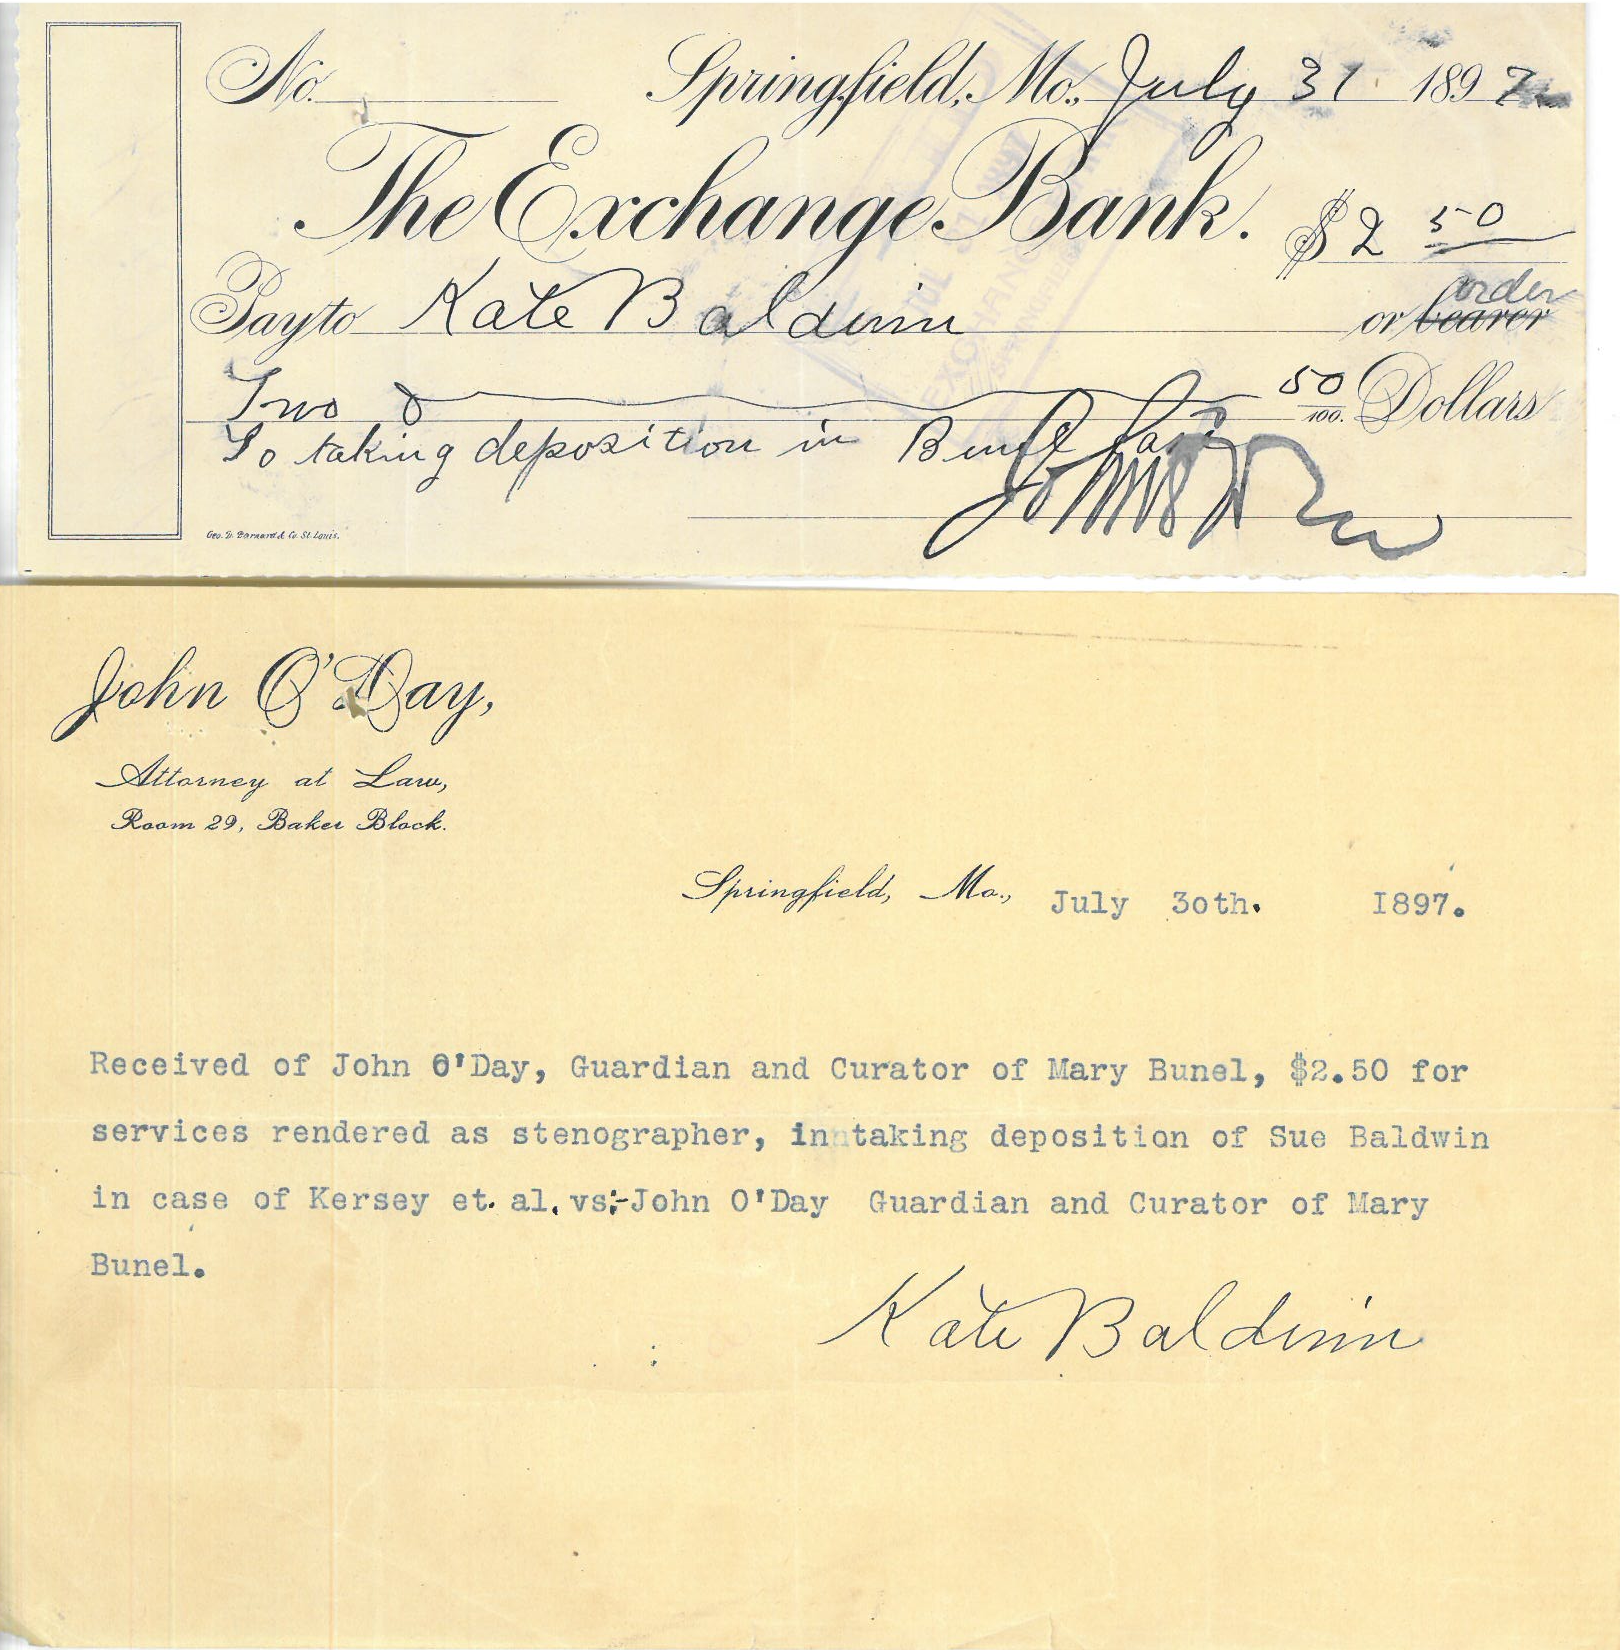 No. Springfield, Mo., July 31 1897
The Exchange Bank.
$ 2 50
Pay to Kate Baldwin or bearer
order
Two 50/100. Dollars
To taking deposition in Bunel Case
Geo. D. Barnard & Co. St. Louis.
JUL 31 1897
EXCHANGE
John O'Day,
Attorney at Law,
Room 29, Baker Block.
Springfield, Mo., July 30th. 1897.
Received of John O'Day, Guardian and Curator of Mary Bunel, $2.50 for
services rendered as stenographer, in taking deposition of Sue Baldwin
in case of Kersey et. al. vs:-John O'Day Guardian and Curator of Mary
Bunel.
Kate Baldwin